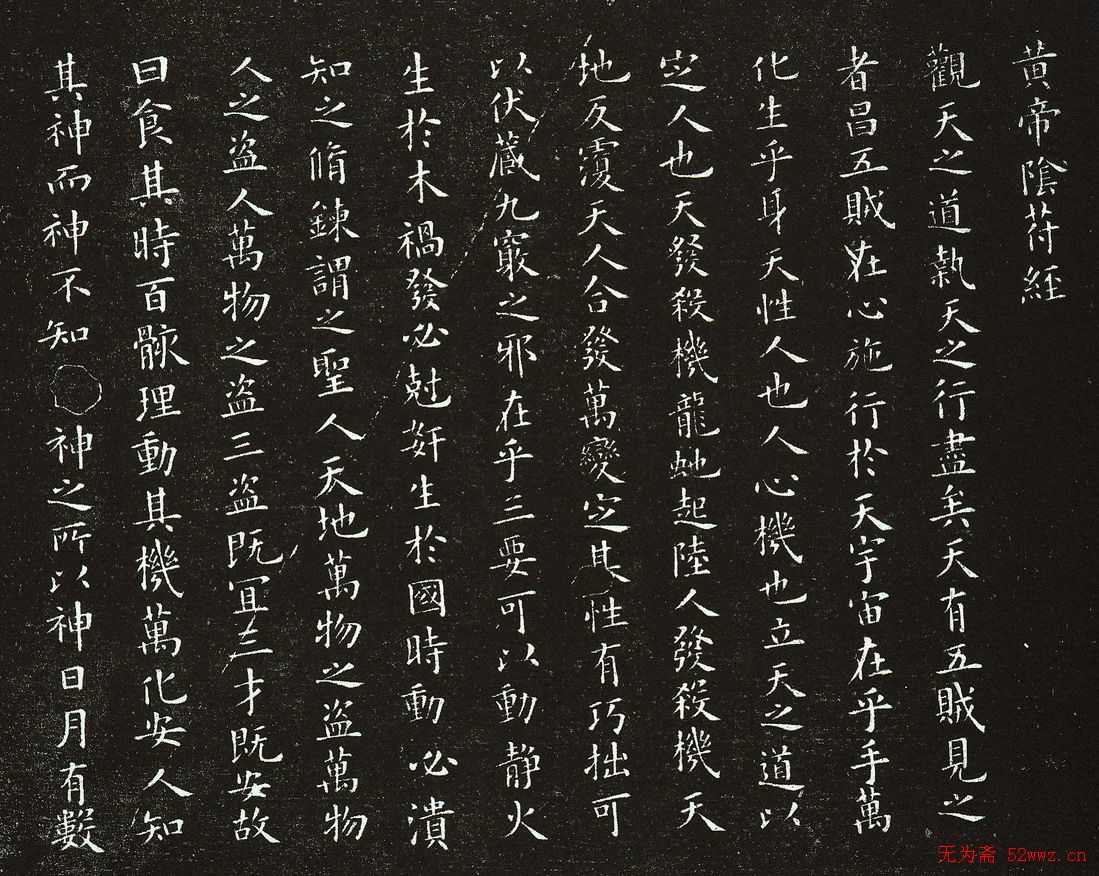 黄帝陰苻經
觀天之道執天之行盡矣天有五賊見之
者昌五賊在心施行於天宇宙在乎手萬
化生乎身天性人也人心機也立天之道以
定人也天發殺機龍虵起陸人發殺機天
地反覆天人合發萬變定其性有巧拙可
以伏藏九竅之邪在乎三要可以動静火
生於木禍發必尅奸生於國時動必潰
知之脩鍊謂之聖人天地萬物之盗萬物
人之盗人萬物之盗三盗既冝三才既安故
曰食其時百骸理動其機萬化安人知
其神而神不知神之所以神日月有數
无为斋 52wwz.cn